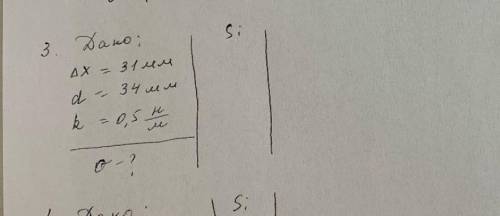 3. Дано: Si
Δx = 31 мм
d = 34 мм
k = 0,5 н/м
σ - ?
Дано: Si